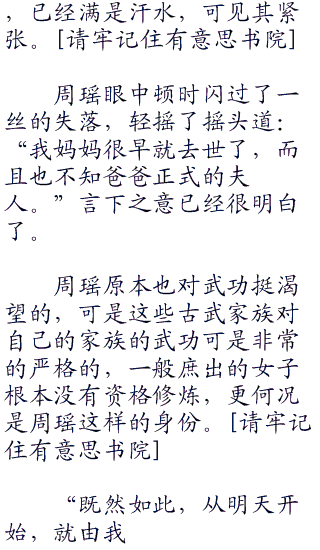 ，已经满是汗水，可见其紧
张。[请牢记住有意思书院]
周瑶眼中顿时闪过了一
丝的失落，轻摇了摇头道：
“我妈妈很早就去世了，而
且也不知爸爸正式的夫
人。”言下之意已经很明白
了。
周瑶原本也对武功挺渴
望的，可是这些古武家族对
自己的家族的武功可是非常
的严格的，一般庶出的女子
根本没有资格修炼，更何况
是周瑶这样的身份。[请牢记
住有意思书院]
“既然如此，从明天开
始，就由我